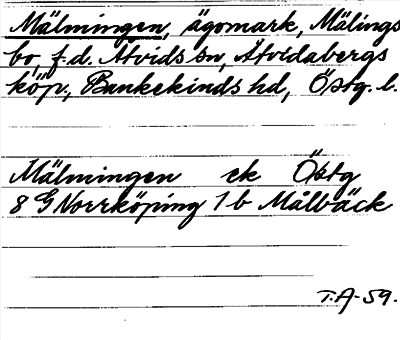 Mälmingen, ägomark, Mälings
bo, f.d. Åtvids sn, Åtvidabergs
köp., Bankekinds hd, Östg. l.
Mälmingen ek Östg
8 G Norrköping 1 b Målbäck
T.A-59.